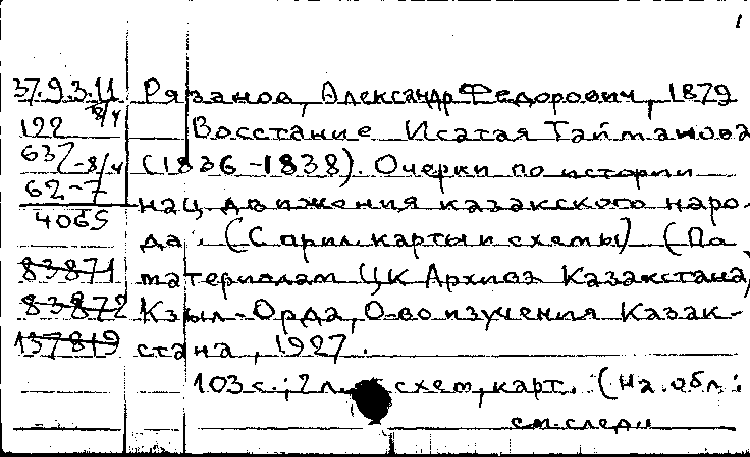 1
37.9.3.11 Рязанов, Александр Федорович, 1879
122 Восстание Исатая Тайманова
637-8/4 (1836-1838). Очерки по истории
62-7 нац. движения казакского наро-
4065 да. (С прил. карты и схемы) (По
83871 материалам ЦК Архива Казакстана)
83872 Кзыл-Орда, О-во изучения Казак-
137819 стана, 1927.
103 с.; 2 л. схем, карт. (На обл.:
см. след.